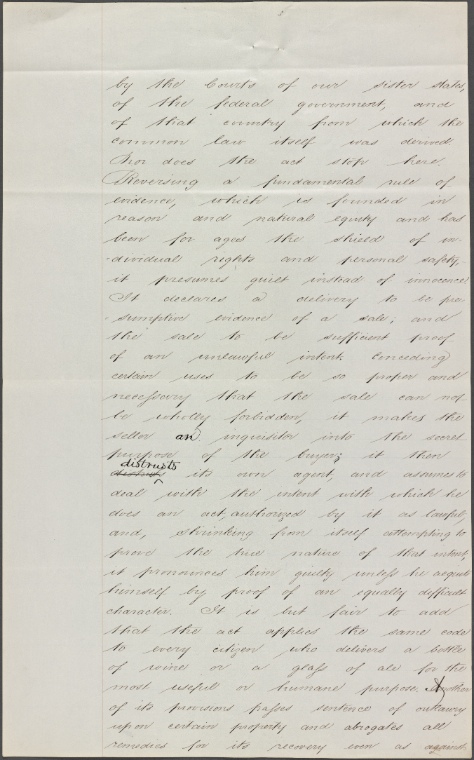 by the Courts of our sister states,
of the federal government, and
of that country from which the
common law itself was derived.
Nor does the act stop here.
Reversing a fundamental rule of
evidence, which is founded in
reason and natural equity and has
been for ages the shield of in-
-dividual rights and personal safety,
it presumes guilt instead of innocence
It declares a delivery to be pre-
-sumptive evidence of a sale; and
the sale to be sufficient proof
of an unlawful intent. Conceding
certain uses to be so proper and
necessary that the sale can not
be wholly forbidden, it makes the
seller an inquisitor into the secret
purpose of the buyer; it then
distrusts
its own agent, and assumes to
deal with the intent with which he
does an act, authorized by it as lawful,
and, shrinking from itself attempting to
prove the true nature of that intent,
it pronounces him guilty unless he acquit
himself by proof of an equally difficult
character. It is but fair to add
that the act applies the same code
to every citizen who delivers a bottle
of wine or a glass of ale for the
most useful or humane purpose. Another
of its provisions passes sentence of outlawry
upon certain property and abrogates all
remedies for its recovery even as against